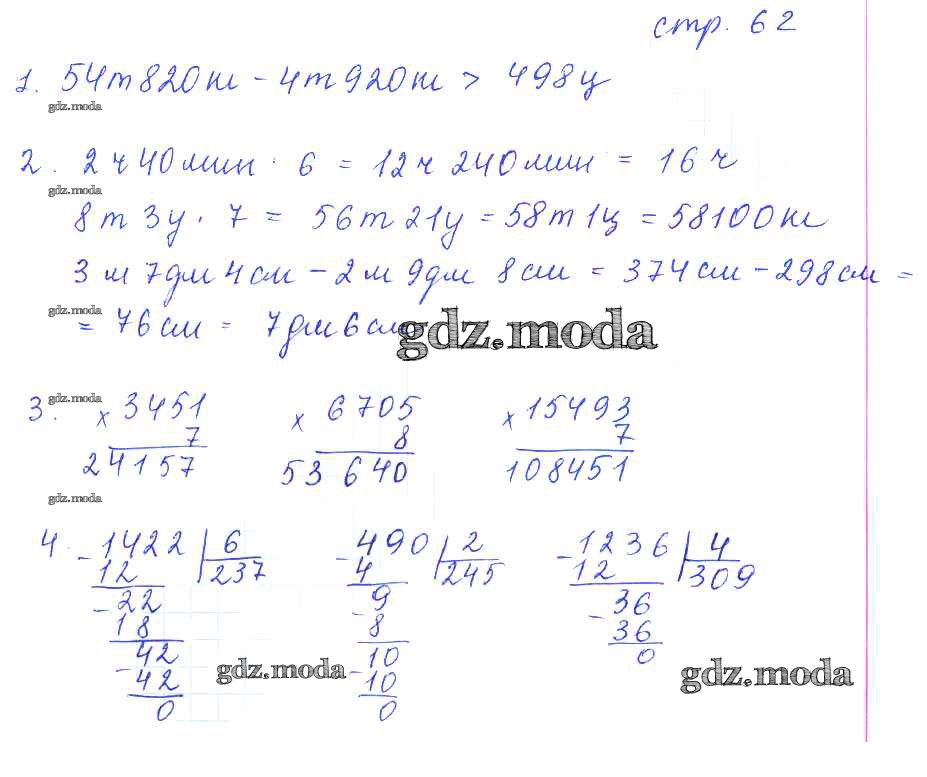 стр. 62
1. 54т820кг - 4т920кг > 498ц
gdz.moda
2. 2ч40мин · 6 = 12ч 240мин = 16ч
gdz.moda
8т 3ц · 7 = 56т 21ц = 58т1ц = 58100кг
3м 7дм 4см - 2м 9дм 8см = 374см - 298см =
gdz.moda
= 76см = 7дм6см
gdz.moda
gdz.moda
3. × 3451 × 6705 × 15493
7 8 7
24157 53640 108451
gdz.moda
4. - 1422 6 - 490 2 - 1236 4
12 237 4 245 12 309
- 22 9 36
18 - 8 - 36
42 10 0
- 42 - 10
0 0
gdz.moda gdz.moda